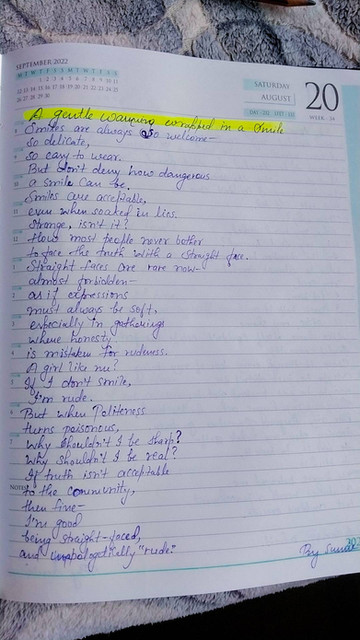 SEPTEMBER 2022
SATURDAY
AUGUST
20
WEEK - 34
A gentle warning wrapped in a smile
Smiles are always so welcome-
so delicate,
so easy to wear.
But don't deny how dangerous
a smile can be.
Smiles are acceptable,
even when soaked in lies.
Strange, isn't it?
How most people never bother
to face the truth with a straight face.
Straight faces are rare now-
almost forbidden-
as if expressions
must always be soft,
especially in gatherings
where honesty
is mistaken for rudeness.
A girl like me?
If I don't smile,
I'm rude.
But when Politeness
turns poisonous,
Why shouldn't I be sharp?
Why shouldn't I be real?
If truth isn't acceptable
NOTES
to the community,
then fine-
I'm good
being straight-faced,
and unapologetically "rude."
By